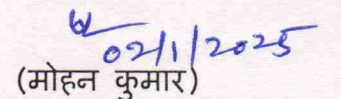 02/1/2025
(मोहन कुमार)